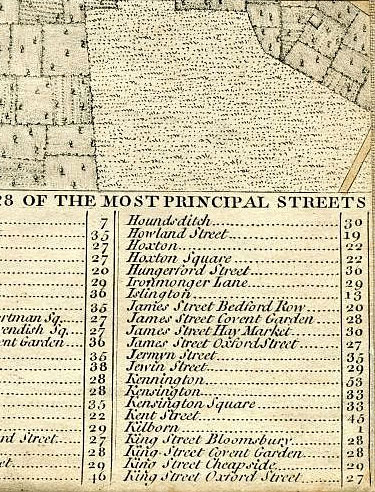 28 OF THE MOST PRINCIPAL STREETS
7
35
27
27
20
29
36
35
ertman Sq. 27
vendish Sq. 27
ent Garden 36
35
38
28
28
35
22
29
rd Street 27
28
et 29
46
Houndsditch 30
Howland Street 19
Hoxton 22
Hoxton Square 22
Hungerford Street 36
Ironmonger Lane 29
Islington 13
James Street Bedford Row 20
James Street Covent Garden 28
James Street Hay Market 30
James Street Oxford Street 27
Jermyn Street 35
Jewin Street 29
Kennington 53
Kensington 33
Kensington Square 33
Kent Street 45
Kilborn 1
King Street Bloomsbury 28
King Street Covent Garden 28
King Street Cheapside 29
King Street Oxford Street 27